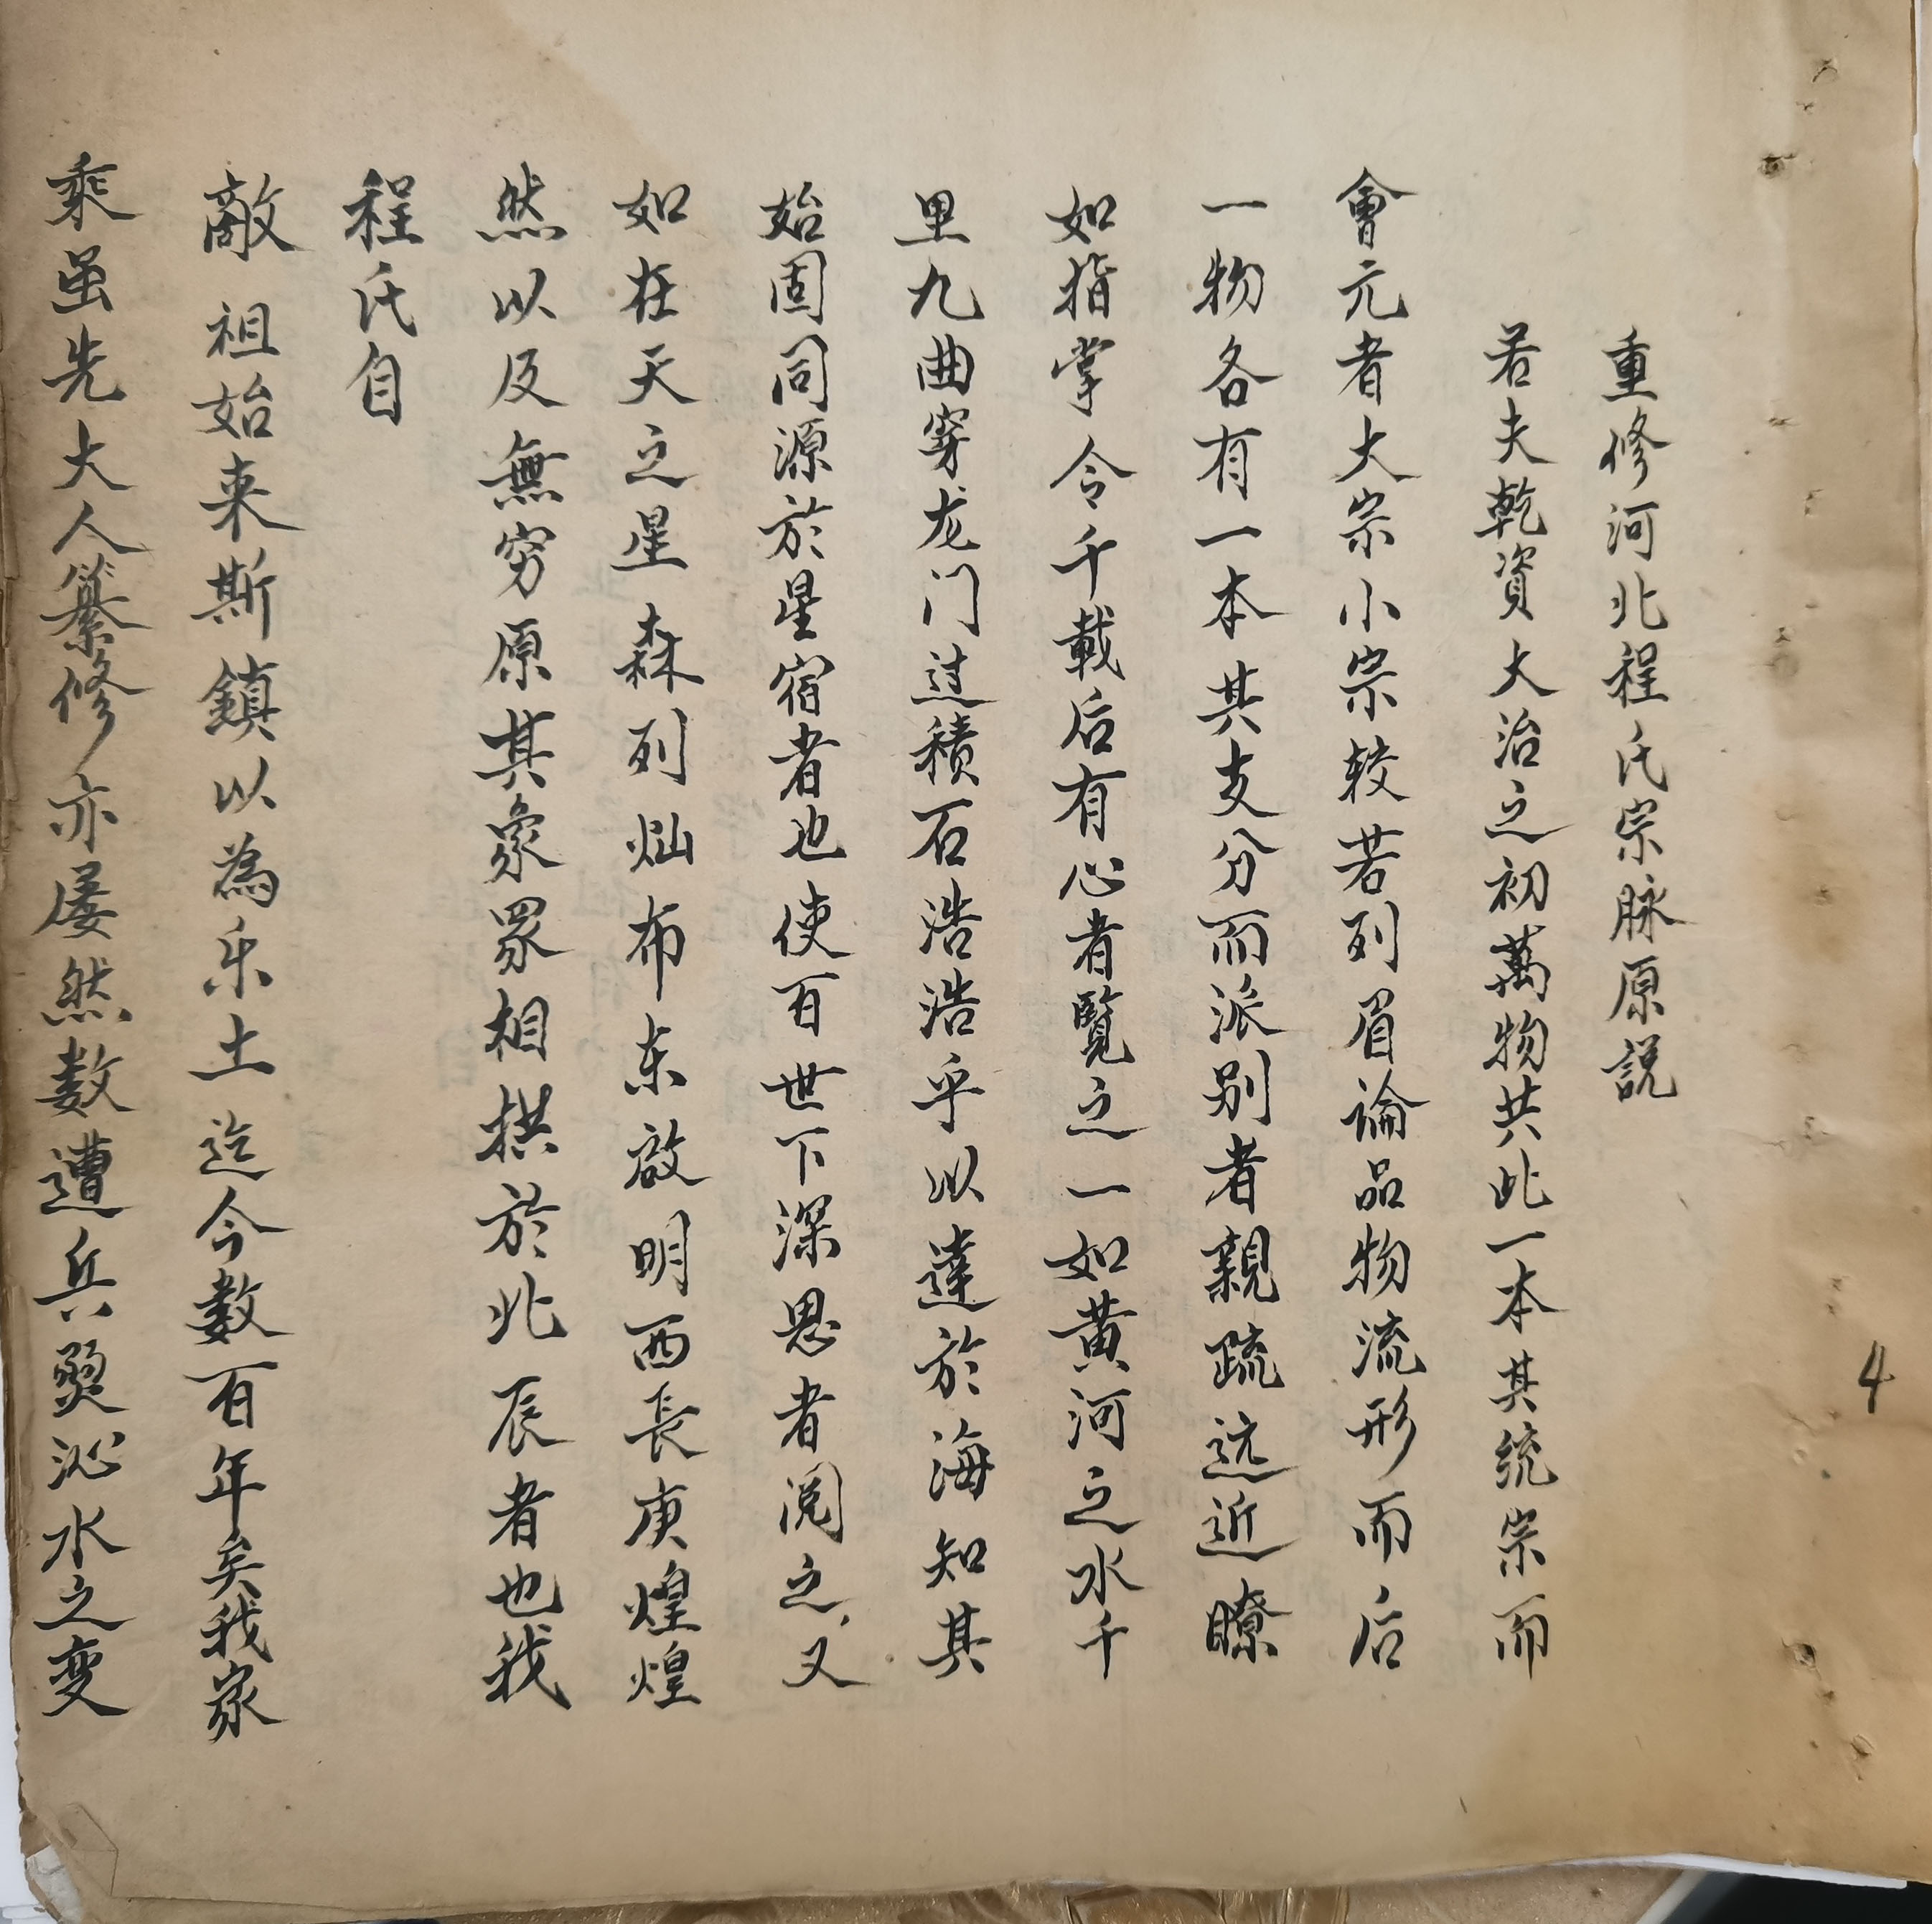 重修河北程氏宗脉原説
若夫乾資大治之初萬物共此一本其统宗而
會元者大宗小宗较若列眉論品物流形而后
一物各有一本其支分而派别者親疏远近瞭
如指掌令千載后有心者覧之一如黄河之水千
里九曲穿龙门过積石浩浩乎以達於海知其
始固同源於星宿者也使百世下深思者阅之又
如在天之星森列灿布东啟明西長庚煌煌
然以及無穷原其象罘相拱於北辰者也我
程氏自
敵祖始来斯鎮以為乐土迄今数百年矣我家
乘虽先大人纂修亦屡然数遭兵燹沁水之变
4